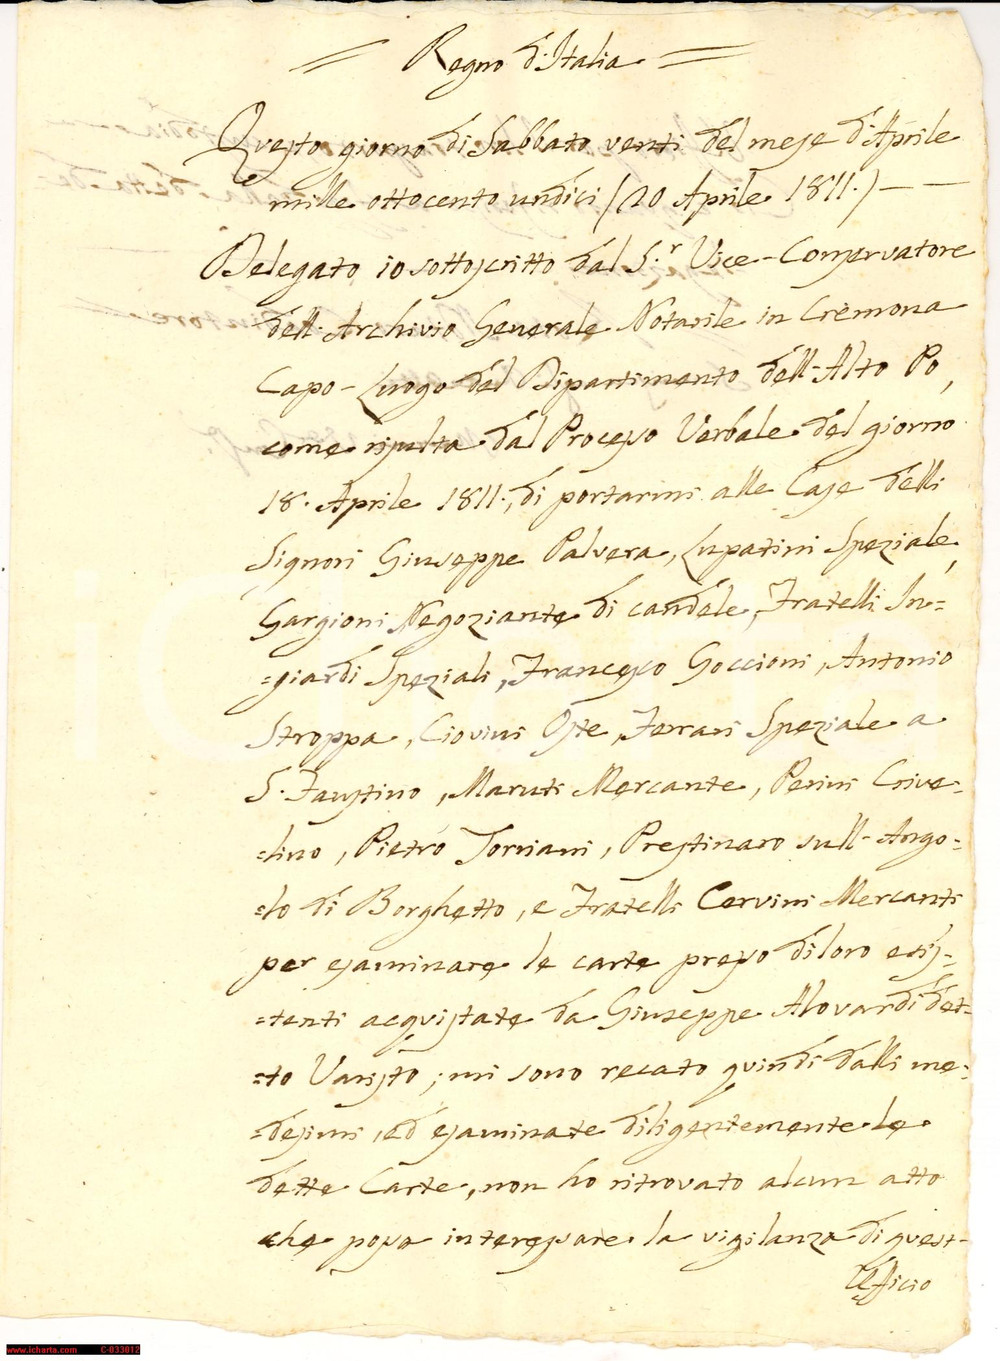 Regno d'Italia.
Questo giorno di Sabbato venti del mese d'Aprile
mille ottocento undici (20 Aprile 1811.)
Delegato io sottoscritto dal S.r Vice-Conservatore
dell'Archivio Generale Notarile in Cremona
Capo-Luogo del Dipartimento dell'Alto Po,
come risulta dal Processo Verbale del giorno
18. Aprile 1811., di portarmi alle Case delli
Signori Giuseppe Palvera, Lupatini Speziale,
Gargioni Negoziante di candele, Fratelli In=
=giardi Speziali, Francesco Goccioni, Antonio
Stroppa, Ciovini Oste, Ferrari Speziale a
S. Faustino, Maruti Mercante, Penini Crive=
=lino, Pietro Torriani, Prestinaro sull'Ango=
=lo di Borghetto, e Fratelli Cervini Mercanti
per esaminare le carte presso di loro esis=
=tenti acquistate da Giuseppe Alovardi det=
=to Varisto; mi sono recato quindi dalli me=
=desimi, ed esaminate diligentemente le
dette Carte, non ho ritrovato alcun atto
che possa interessare la vigilanza di quest'
Ufficio
www.icharta.com C-033012